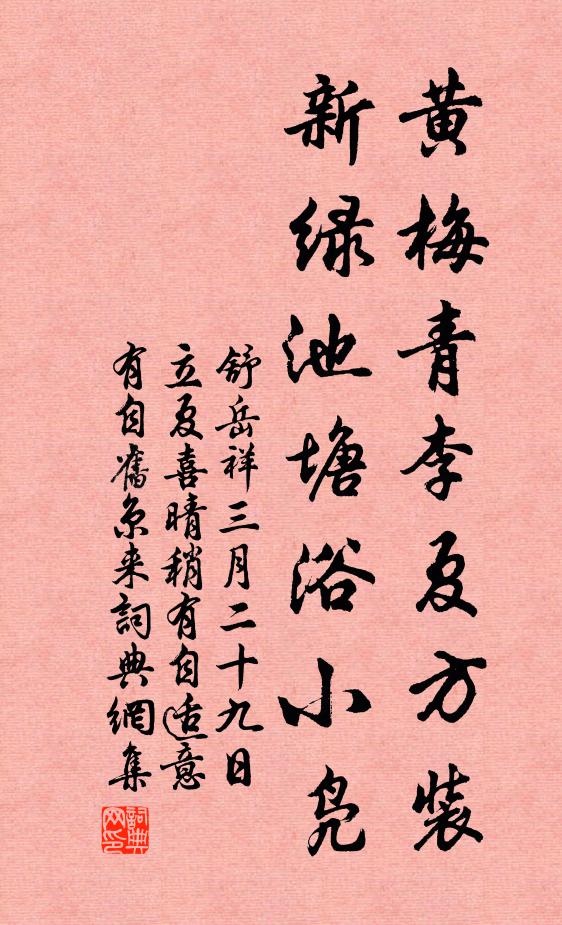 黄梅青李夏方裝
新绿池塘浴小凫
舒岳祥三月二十九日
立夏喜晴稍有自适意
有自舊京来詞典網集
詞典
网印